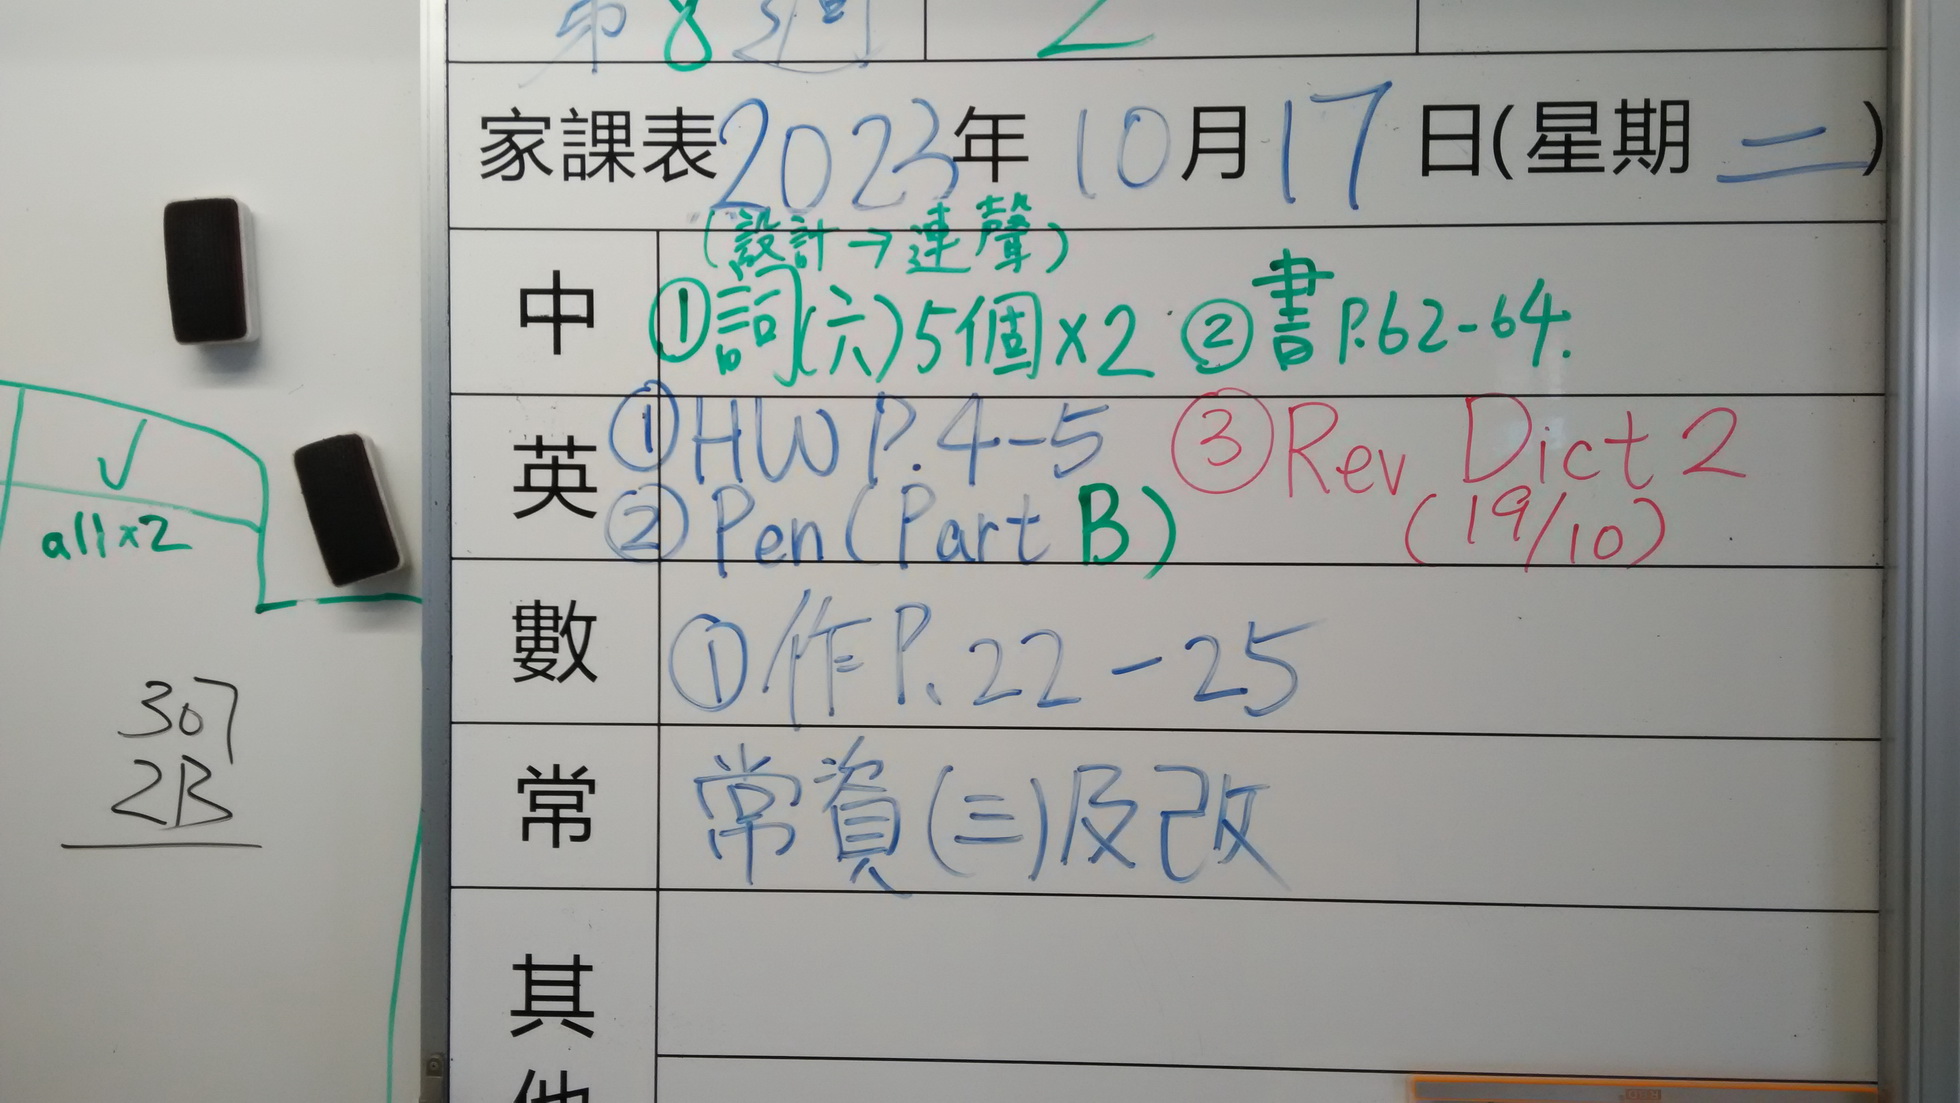 第8週 2
家課表2023年10月17日(星期二)
(設計→連聲)
中 ①詞(六)5個×2 ②書P.62-64.
英 ①HW P.4-5 ③Rev Dict 2
②Pen(Part B) (19/10)
數 ①作P.22-25
常 常資(三)及改
其他
all×2
307
2B